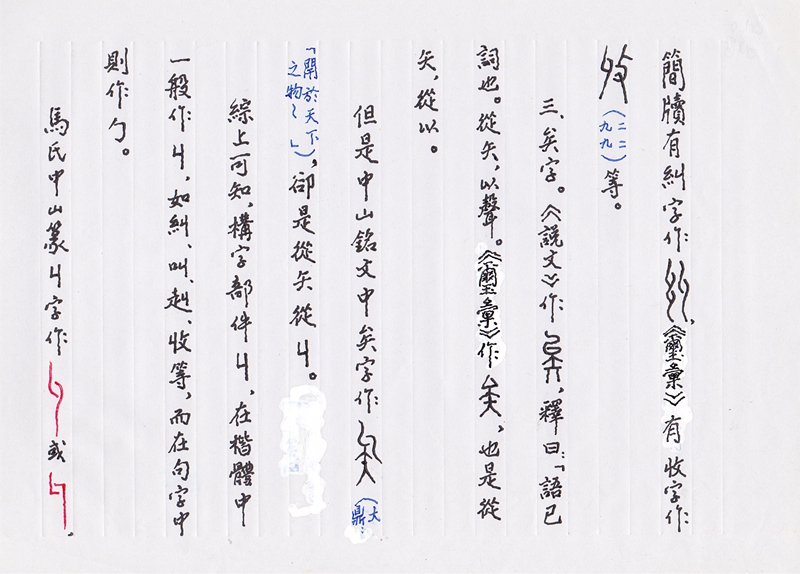 簡牘有糾字作，《璽彙》有收字作
（二二九九）等。
三、矣字。《說文》作，釋曰：「語已
詞也。從矢，以聲。《璽彙》作，也是從
矢，從以。
但是中山銘文中矣字作（大鼎：
「閈於天下之物」），卻是從矢從丩。
綜上可知，構字部件丩，在楷體中
一般作丩，如糾、叫、赳、收等，而在句字中
則作勹。
馬氏中山篆丩字作或。